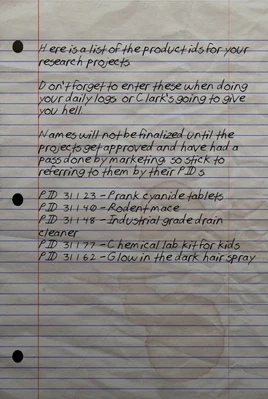 Here is a list of the product ids for your
research projects
Don't forget to enter these when doing
your daily logs or Clark's going to give
you hell.
Names will not be finalized until the
projects get approved and have had a
pass done by marketing so stick to
referring to them by their PIDs
PID 31123 - Prank cyanide tablets
PID 31140 - Rodent mace
PID 31148 - Industrial grade drain
cleaner
PID 31177 - Chemical lab kit for kids
PID 31162 - Glow in the dark hair spray